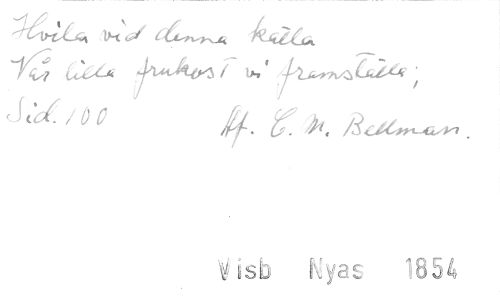 Hvila vid denna källa
Vår lilla frukost vi framställa;
Sid. 100
Af. C. M. Bellman.
Visb Nyas 1854